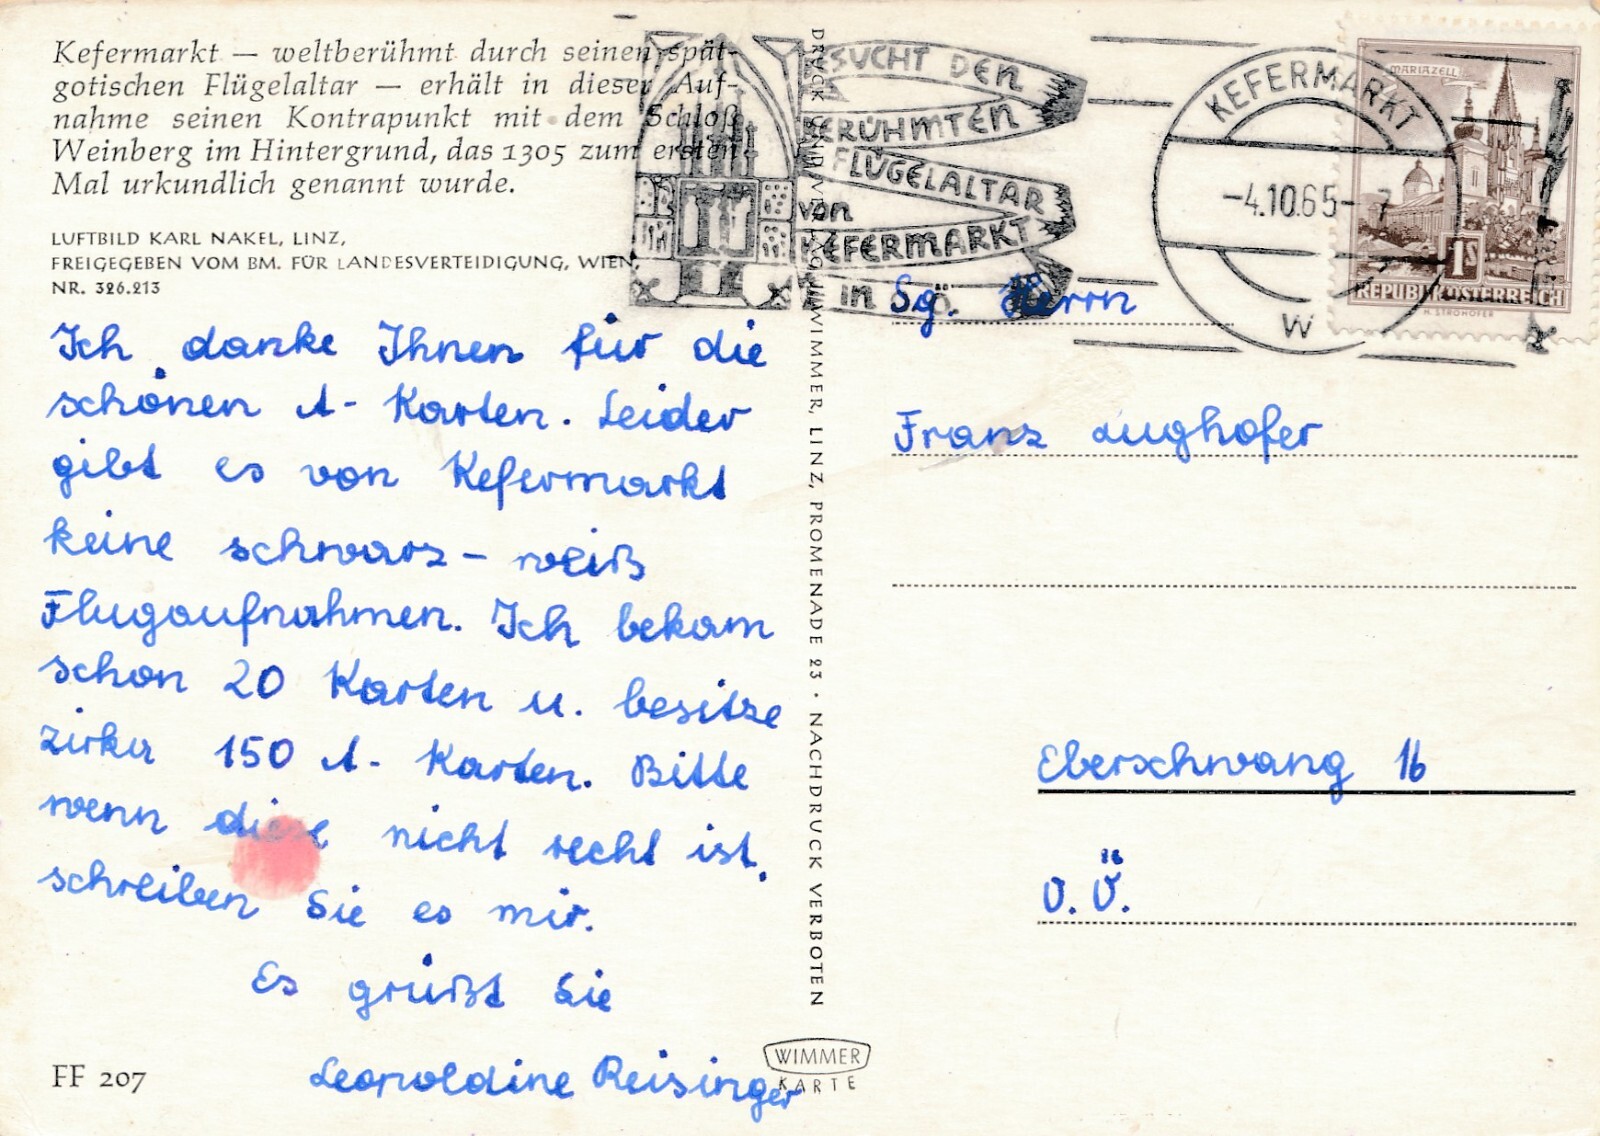 Kefermarkt — weltberühmt durch seinen spät-
gotischen Flügelaltar — erhält in dieser Auf-
nahme seinen Kontrapunkt mit dem Schloß
Weinberg im Hintergrund, das 1305 zum ersten
Mal urkundlich genannt wurde.
LUFTBILD KARL NAKEL, LINZ,
FREIGEGEBEN VOM BM. FÜR LANDESVERTEIDIGUNG, WIEN,
NR. 326.213
Ich danke Ihnen für die
schönen A-Karten. Leider
gibt es von Kefermarkt
keine schwarz-weiß
Flugaufnahmen. Ich bekam
schon 20 Karten u. besitze
zirka 150 A-Karten. Bitte
wenn diese nicht recht ist,
schreiben Sie es mir.
Es grüßt Sie
Leopoldine Reisinger
FF 207
WIMMER
KARTE
DRUCK UND VERLAG WIMMER, LINZ, PROMENADE 23 · NACHDRUCK VERBOTEN
BESUCHT DEN
BERÜHMTEN
FLÜGELALTAR
von
KEFERMARKT
in OÖ
KEFERMARKT
-4.10.65-7
W
MARIAZELL
1S
REPUBLIK ÖSTERREICH
H. STROHOFER
Sg. Herrn
Franz Lughofer
Eberschwang 16
O.Ö.